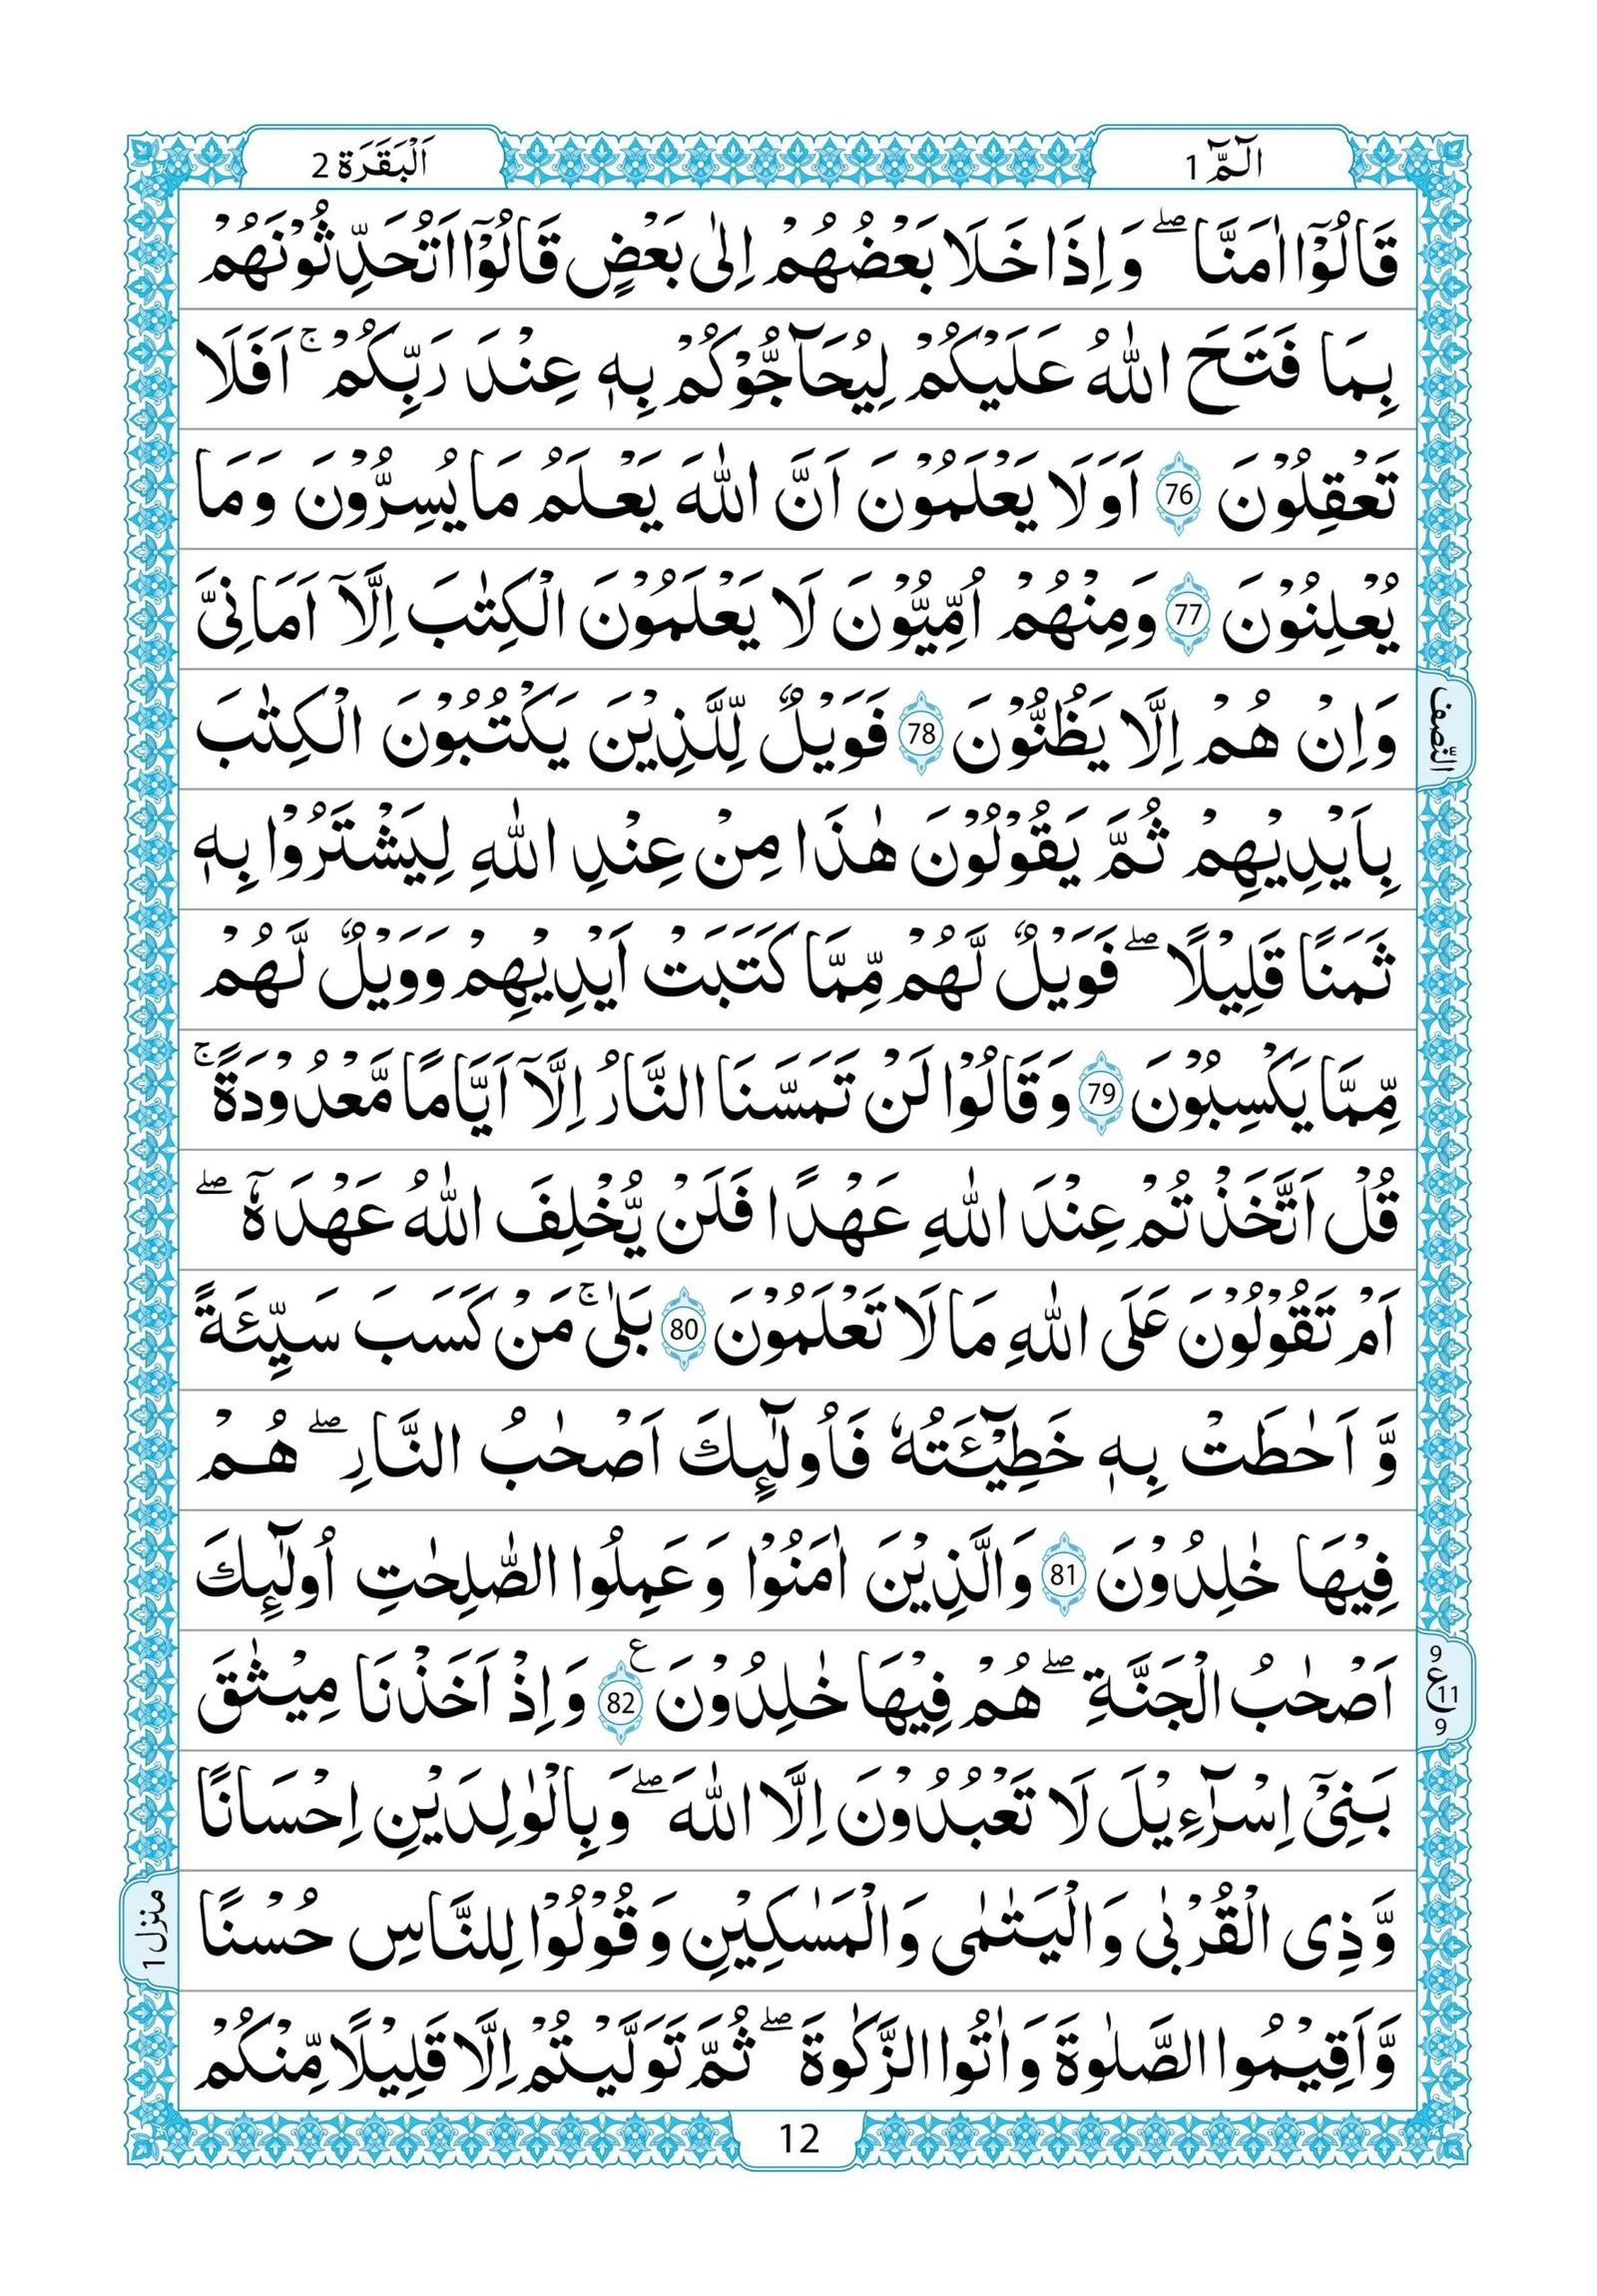 الٓمّٓ 1
اَلْبَقَرَة 2
قَالُوْٓا اٰمَنَّا ۖ وَاِذَا خَلَا بَعْضُهُمْ اِلٰى بَعْضٍ قَالُوْٓا اَتُحَدِّثُوْنَهُمْ
بِمَا فَتَحَ اللّٰهُ عَلَيْكُمْ لِيُحَآجُّوْكُمْ بِهٖ عِنْدَ رَبِّكُمْ ۚ اَفَلَا
تَعْقِلُوْنَ 76 اَوَلَا يَعْلَمُوْنَ اَنَّ اللّٰهَ يَعْلَمُ مَا يُسِرُّوْنَ وَمَا
يُعْلِنُوْنَ 77 وَمِنْهُمْ اُمِّيُّوْنَ لَا يَعْلَمُوْنَ الْكِتٰبَ اِلَّآ اَمَانِىَّ
وَاِنْ هُمْ اِلَّا يَظُنُّوْنَ 78 فَوَيْلٌ لِّلَّذِيْنَ يَكْتُبُوْنَ الْكِتٰبَ
النّصف
بِاَيْدِيْهِمْ ثُمَّ يَقُوْلُوْنَ هٰذَا مِنْ عِنْدِ اللّٰهِ لِيَشْتَرُوْا بِهٖ
ثَمَنًا قَلِيْلًا ۖ فَوَيْلٌ لَّهُمْ مِّمَّا كَتَبَتْ اَيْدِيْهِمْ وَوَيْلٌ لَّهُمْ
مِّمَّا يَكْسِبُوْنَ 79 وَقَالُوْا لَنْ تَمَسَّنَا النَّارُ اِلَّآ اَيَّامًا مَّعْدُوْدَةً ۚ
قُلْ اَتَّخَذْتُمْ عِنْدَ اللّٰهِ عَهْدًا فَلَنْ يُّخْلِفَ اللّٰهُ عَهْدَهٗٓ ۖ
اَمْ تَقُوْلُوْنَ عَلَى اللّٰهِ مَا لَا تَعْلَمُوْنَ 80 بَلٰى ۚ مَنْ كَسَبَ سَيِّئَةً
وَّ اَحٰطَتْ بِهٖ خَطِيْٓئَتُهٗ فَاُولٰٓئِكَ اَصْحٰبُ النَّارِ ۖ هُمْ
فِيْهَا خٰلِدُوْنَ 81 وَالَّذِيْنَ اٰمَنُوْا وَعَمِلُوا الصّٰلِحٰتِ اُولٰٓئِكَ
اَصْحٰبُ الْجَنَّةِ ۖ هُمْ فِيْهَا خٰلِدُوْنَ ع 82 وَاِذْ اَخَذْنَا مِيْثٰقَ
9 ع 11 9
بَنِىْٓ اِسْرَآءِيْلَ لَا تَعْبُدُوْنَ اِلَّا اللّٰهَ ۖ وَبِالْوٰلِدَيْنِ اِحْسَانًا
وَّذِى الْقُرْبٰى وَالْيَتٰمٰى وَالْمَسٰكِيْنِ وَقُوْلُوْا لِلنَّاسِ حُسْنًا
منزل 1
وَّاَقِيْمُوا الصَّلٰوةَ وَاٰتُوا الزَّكٰوةَ ۖ ثُمَّ تَوَلَّيْتُمْ اِلَّا قَلِيْلًا مِّنْكُمْ
12